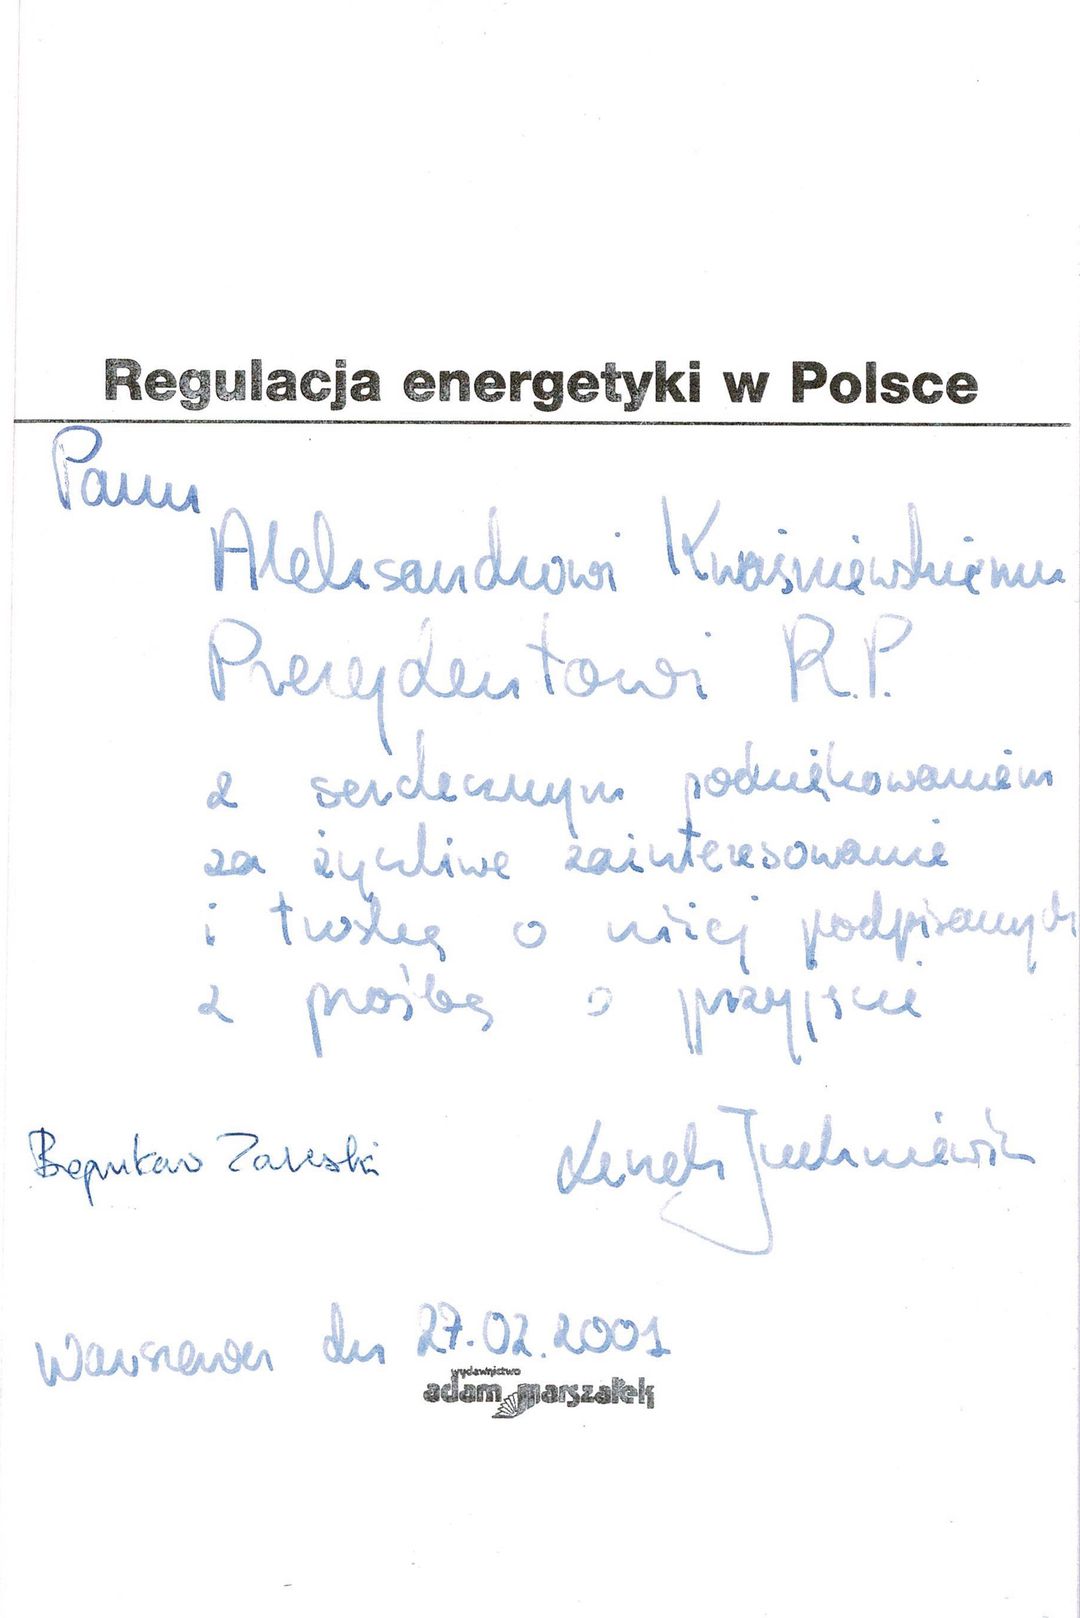 Regulacja energetyki w Polsce
Panu
Aleksandrowi Kwaśniewskiemu
Prezydentowi R.P.
z serdecznym podziękowaniem
za życzliwe zainteresowanie
i troskę o niżej podpisanych
z prośbą o przyjęcie
Zaleski Leszek Juchniewicz
Warszawa dn 27.02.2001
wydawnictwo
adam marszałek